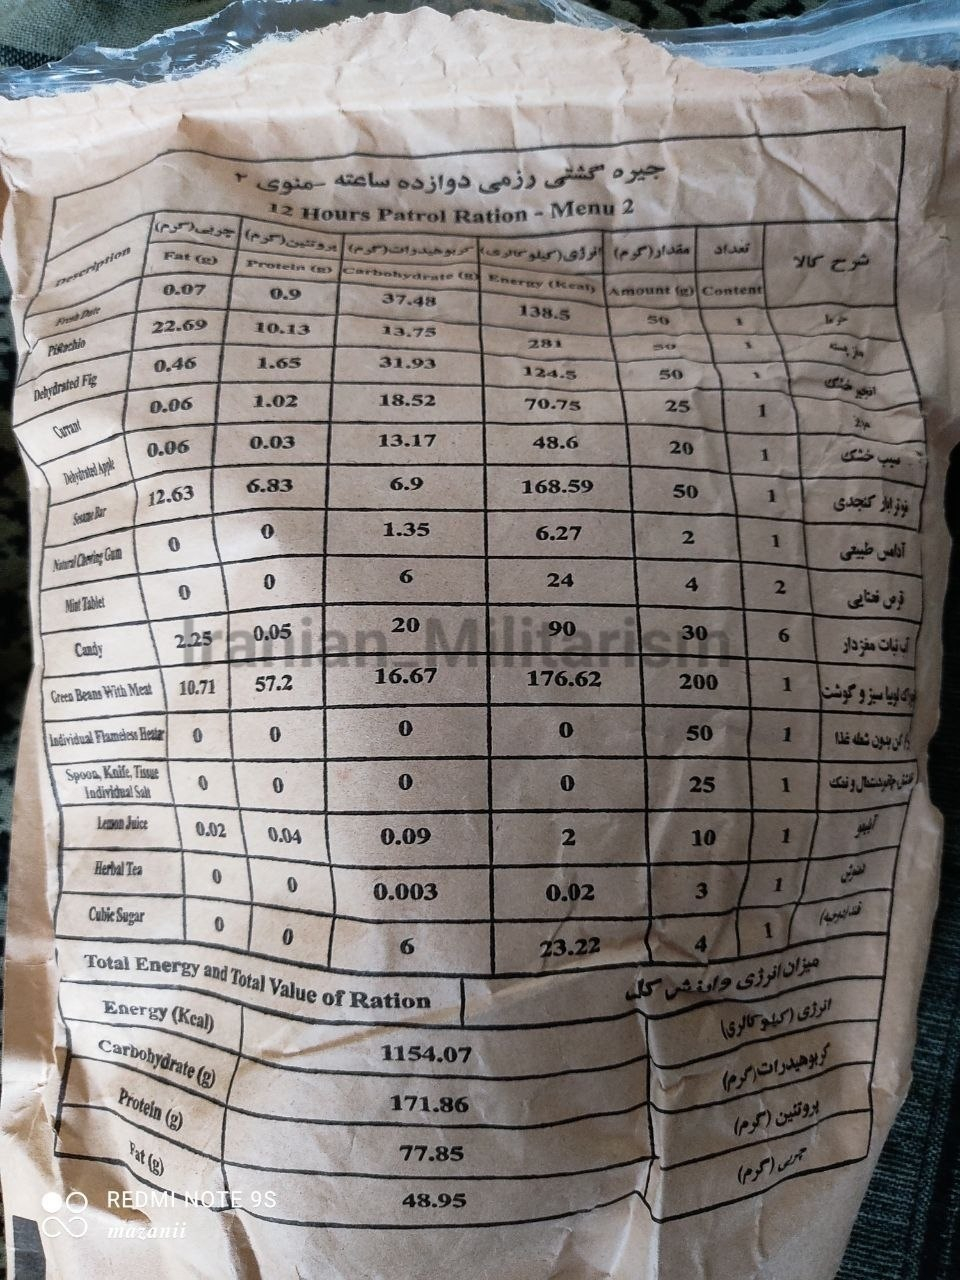 جیره گشتی رزمی دوازده ساعته -منوی ۲
12 Hours Patrol Ration - Menu 2
Description چربی(گرم) پروتئین(گرم) کربوهیدرات(گرم) انرژی(کیلوکالری) مقدار(گرم) تعداد شرح کالا
Fat (g) Protein (g) Carbohydrate (g) Energy (Kcal) Amount (g) Content
Fresh Date 0.07 0.9 37.48 138.5 50 1 خرما
Pistachio 22.69 10.13 13.75 281 50 1 مغز پسته
Dehydrated Fig 0.46 1.65 31.93 124.5 50 1 انجیر خشک
Currant 0.06 1.02 18.52 70.75 25 1
Dehydrated Apple 0.06 0.03 13.17 48.6 20 1 سیب خشک
Sesame Bar 12.63 6.83 6.9 168.59 50 1 کنجدی
Natural Chewing Gum 0 0 1.35 6.27 2 1 آدامس طبیعی
Mint Tablet 0 0 6 24 4 2 قرص نعنایی
Candy 2.25 0.05 20 90 30 6 آب نبات مغزدار
Green Beans With Meat 10.71 57.2 16.67 176.62 200 1 خوراک لوبیا سبز و گوشت
Individual Flameless Heater 0 0 0 0 50 1 گرم کن بدون شعله غذا
Spoon, Knife, Tissue
Individual Salt 0 0 0 0 25 1 دستمال و نمک
Lemon Juice 0.02 0.04 0.09 2 10 1 آبلیمو
Herbal Tea 0 0 0.003 0.02 3 1
Cubic Sugar 0 0 6 23.22 4 1
Total Energy and Total Value of Ration میزان انرژی و ارزش کل
Energy (Kcal) 1154.07 انرژی (کیلوکالری)
Carbohydrate (g) 171.86 کربوهیدرات(گرم)
Protein (g) 77.85 پروتئین (گرم)
Fat (g) 48.95 چربی (گرم)
Iranian_Militarism
REDMI NOTE 9S
mazanii